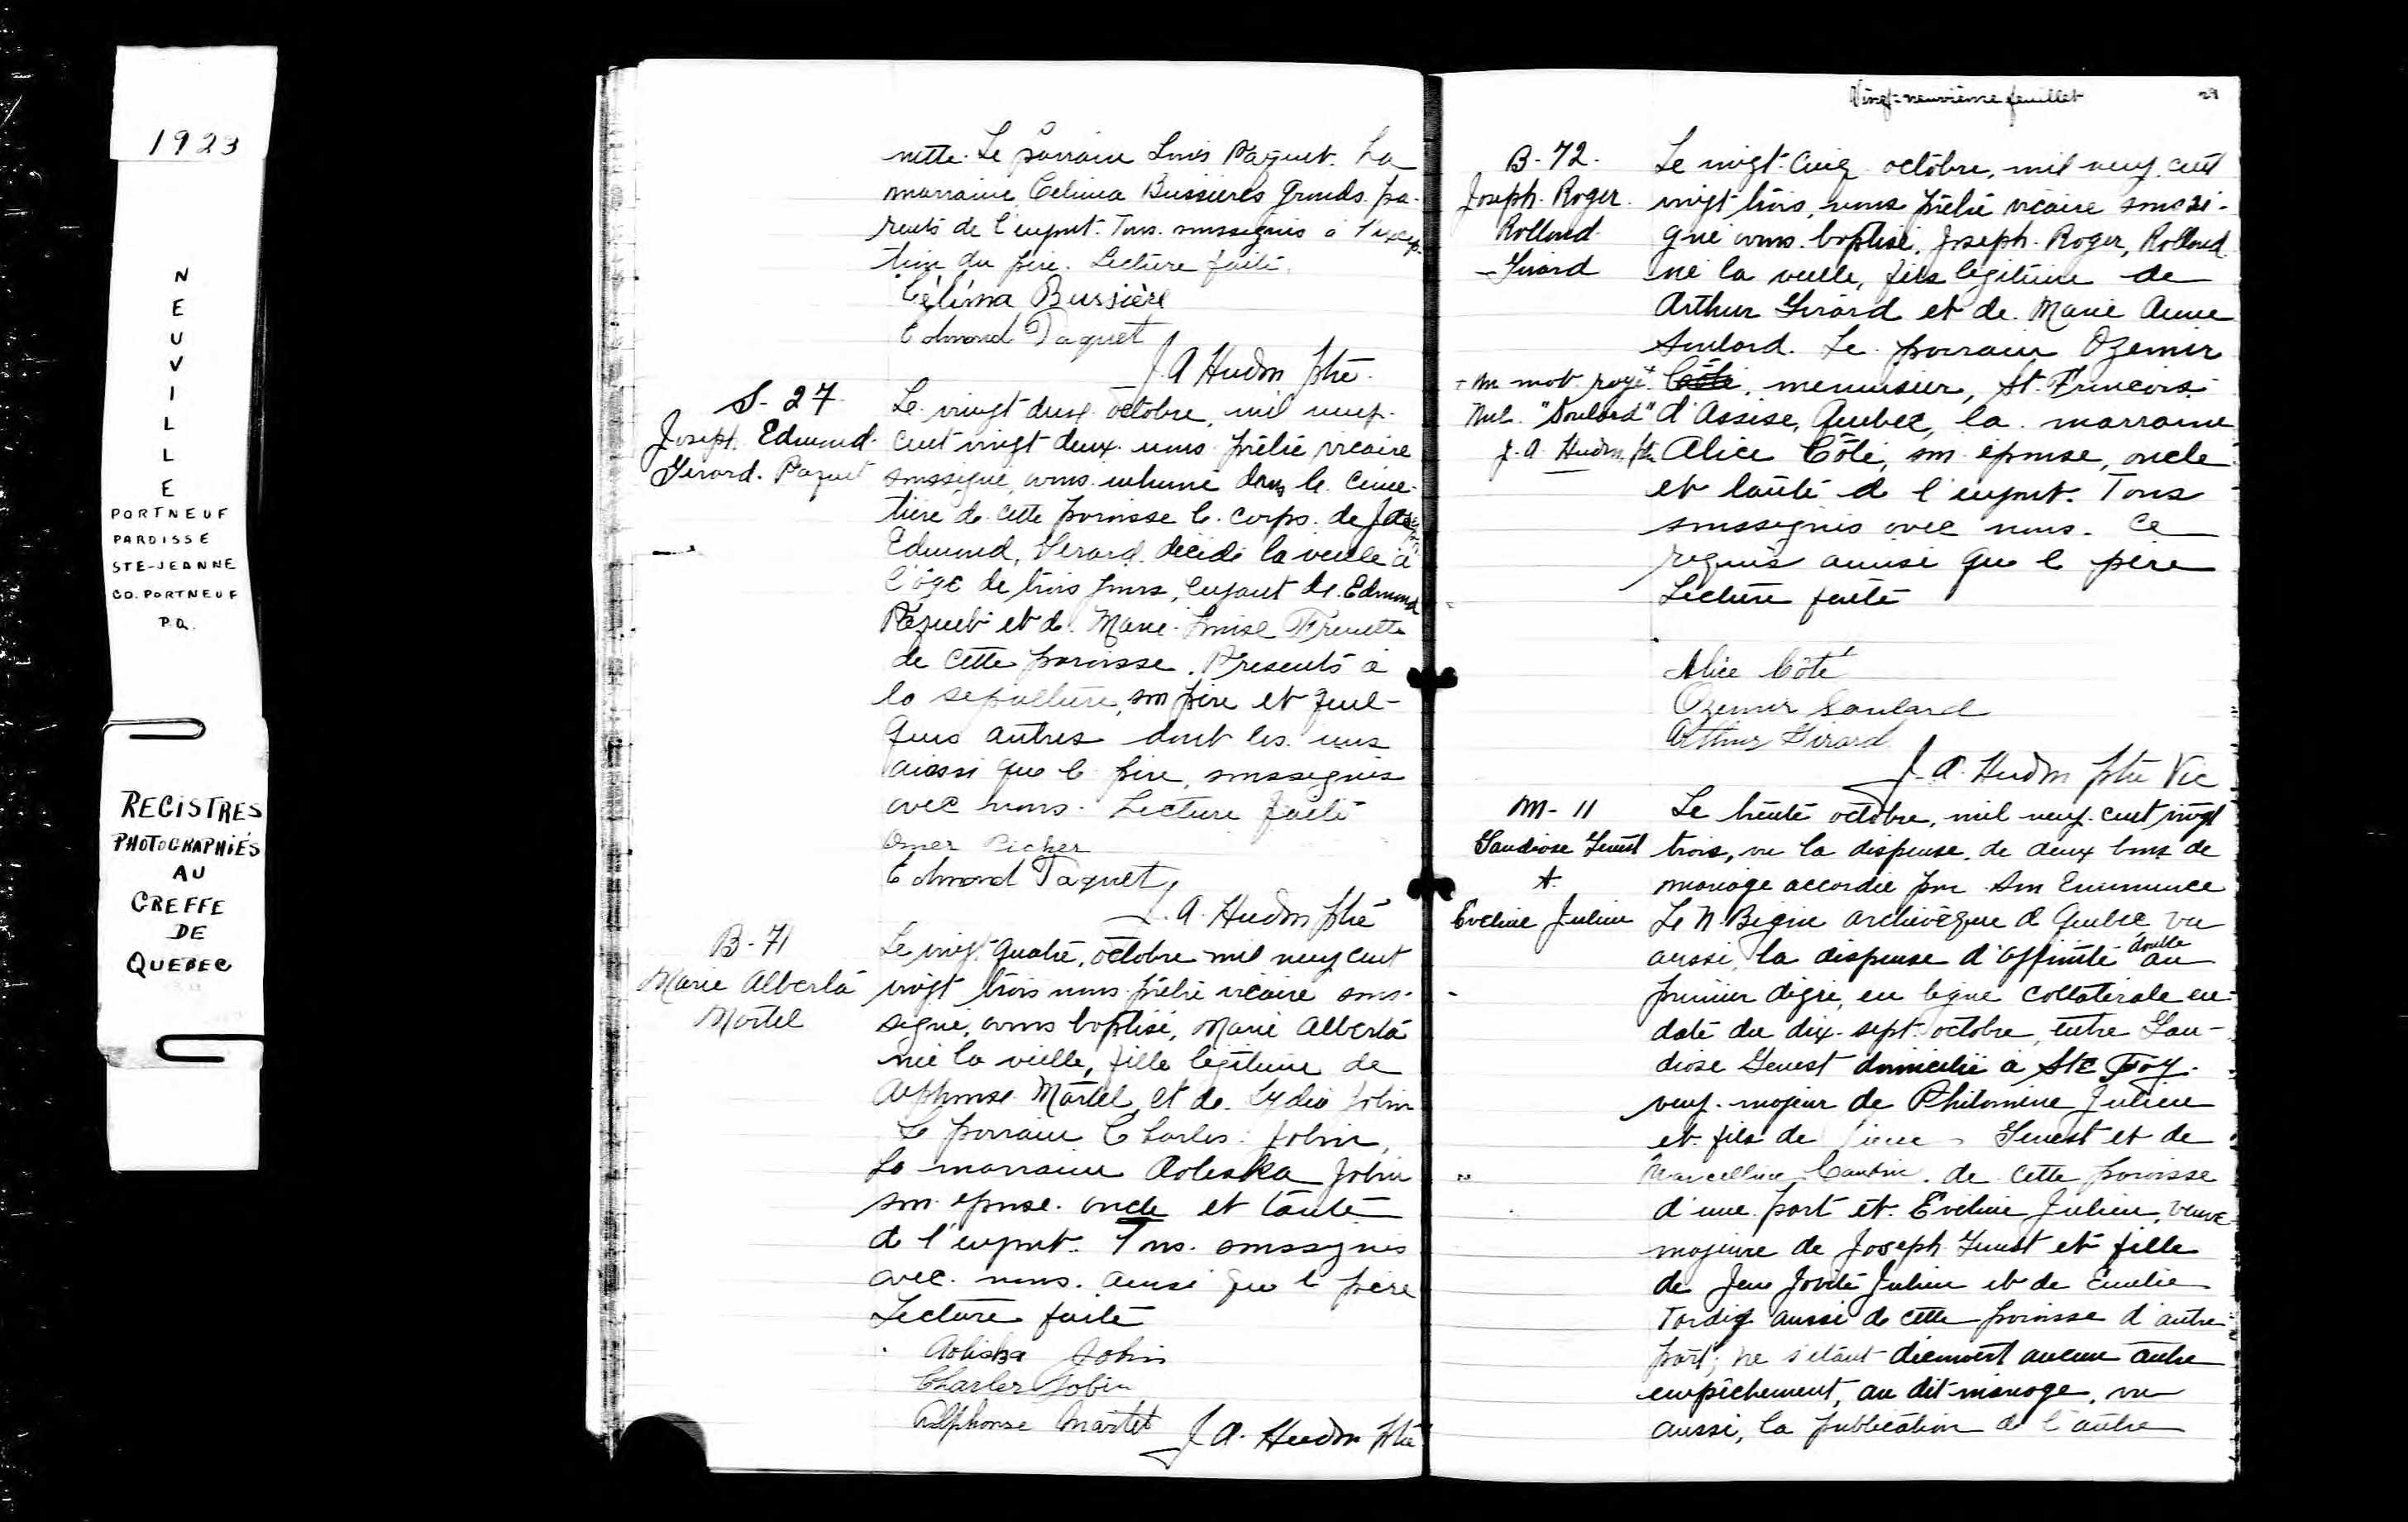 1923
N
E
U
V
I
L
L
E
PORTNEUF
PAROISSE
STE-JEANNE
CO. PORTNEUF
P.Q.
REGISTRES
PHOTOGRAPHIÉS
AU
GREFFE
DE
QUEBEC
nette. Le parrain Louis Paquet. La
marraine, Celima Bussieres grands pa-
rents de l'enfant. Tous soussignés à l'excep-
tion du père. Lecture faite.
Célima Bussière
Edmond Paquet
J. A Hudon ptre.
S- 27
Joseph Edmond
Gerard. Paquet
Le vingt deux octobre, mil neuf
cent vingt deux nous prêtre vicaire
soussigné, avons inhumé dans le cime-
tière de cette paroisse le corps de Joseph
Edmond, Gerard décédé la veille à
l'âge de trois jours, enfant de Edmond
Paquet et de Marie-Louise Frenette
de cette paroisse. Présents à
la sépulture, son père et quel-
ques autres dont les uns
aussi que le père, soussignés
avec nous. Lecture faite
Omer Picher
Edmond Paquet
J. A. Hudon ptre
B- 71
Marie Alberta
Martel
Le vingt quatre, octobre mil neuf cent
vingt trois nous prêtre vicaire sous-
signé, avons baptisé, Marie Alberta
née la veille, fille légitime de
Alphonse Martel et de Lydia Jobin
Le parrain Charles Jobin,
La marraine Aoleska Jobin
son épouse. oncle et tante
de l'enfant. Tous soussignés
avec nous. ainsi que le père
Lecture faite
Aoliska Jobin
Charles Jobin
Alphonse Martel
J A. Hudon ptre
Vingt-neuvième feuillet
29
B- 72.
Joseph. Roger.
Rolland
Girard
Le vingt-cinq octobre, mil neuf cent
vingt trois, nous prêtre vicaire soussi-
gné avons baptisé, Joseph. Roger, Rolland
né la veille, fils légitime de
Arthur Girard et de Marie Anne
Soulard. Le parrain Ozemir
+ un mot rayé
nul. "Soulard"
J. A. Hudon ptre
+ Côté, menuisier, St. François
d'Assise, Quebec, la marraine
Alice Côté, son épouse, oncle
et tante de l'enfant. Tous
soussignés avec nous. Ce
requis ainsi que le père
Lecture faite
Alice Côté
Ozemir Soulard
Arthur Girard
J. A. Hudon ptre Vic
M- 11
Gaudiose Genest
&
Eveline Julien
Le trente octobre, mil neuf cent vingt
trois, vu la dispense de deux bans de
mariage accordée par Son Eminence
Le N. Bégin archevêque de Quebec vu
aussi, la dispense d'affinité double au
premier degré, en ligne collatérale en
date du dix-sept octobre, entre Gau-
diose Genest domicilié à Ste Foy.
veuf majeur de Philomène Julien
et fils de Pierre Genest et de
Marcelline Cantin. de cette paroisse
d'une part et Eveline Julien, veuve
majeure de Joseph Genest et fille
de Jean Jovite Julien et de Emelie
Tardif aussi de cette paroisse d'autre
part; ne s'étant découvert aucun autre
empêchement, au dit mariage, vu
aussi, la publication de l'autre